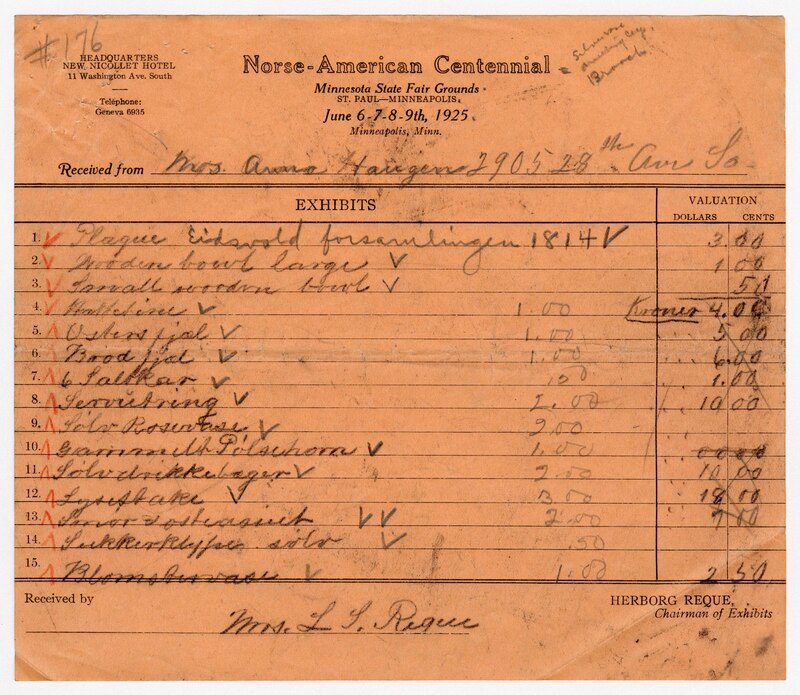 #176
HEADQUARTERS
NEW NICOLLET HOTEL
11 Washington Ave. South
Telephone:
Geneva 6935
Norse-American Centennial
Minnesota State Fair Grounds
ST. PAUL—MINNEAPOLIS,
June 6-7-8-9th, 1925
Minneapolis, Minn.
Branch
Received from Mrs. Anna Haugen 2905 28th Ave So
EXHIBITS VALUATION
DOLLARS CENTS
1. Plaque Eidsvold forsamlingen 1814 3.00
2. Wooden bowl large 1 00
3. Small wooden bowl 50
4. 1.00 Kroner 4.00
5. 1.00 5 00
6. 1.00 6.00
7. 6 Saltkar 50 1.00
8. Servietring 10 00
9. Sølv Rosevase 2.00
10. Gammelt Pølsehorn 1.00
11. Sølvdrikkebager 2.00 10 00
12. Lysestake 3.00 18 00
13. 2.00 7 00
14. Sukkerklype sølv .50
15. Blomstervase 1.00 2 50
Received by Mrs. L S. Reque
HERBORG REQUE,
Chairman of Exhibits